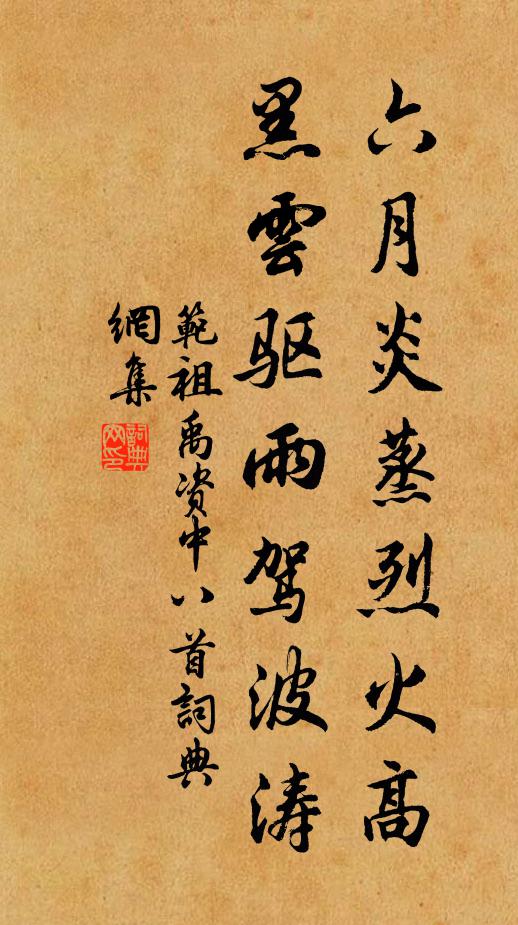 六月炎蒸烈火高
黑雲驱雨驾波涛
範祖禹资中八首詞典
網集
詞典
网印